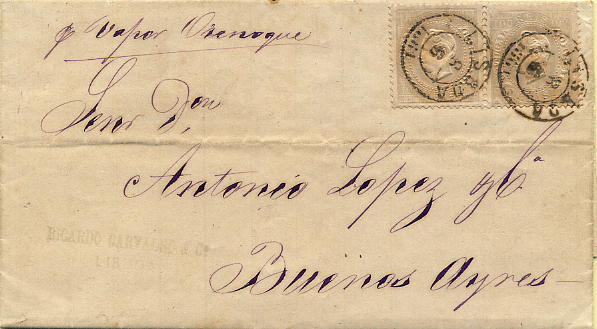 p Vapor Orenoque
Senr. Dn.
Antonio Lopez y Ca
Buenos Ayres
RICARDO CARVALHO & Cª
LISBOA
LISBOA